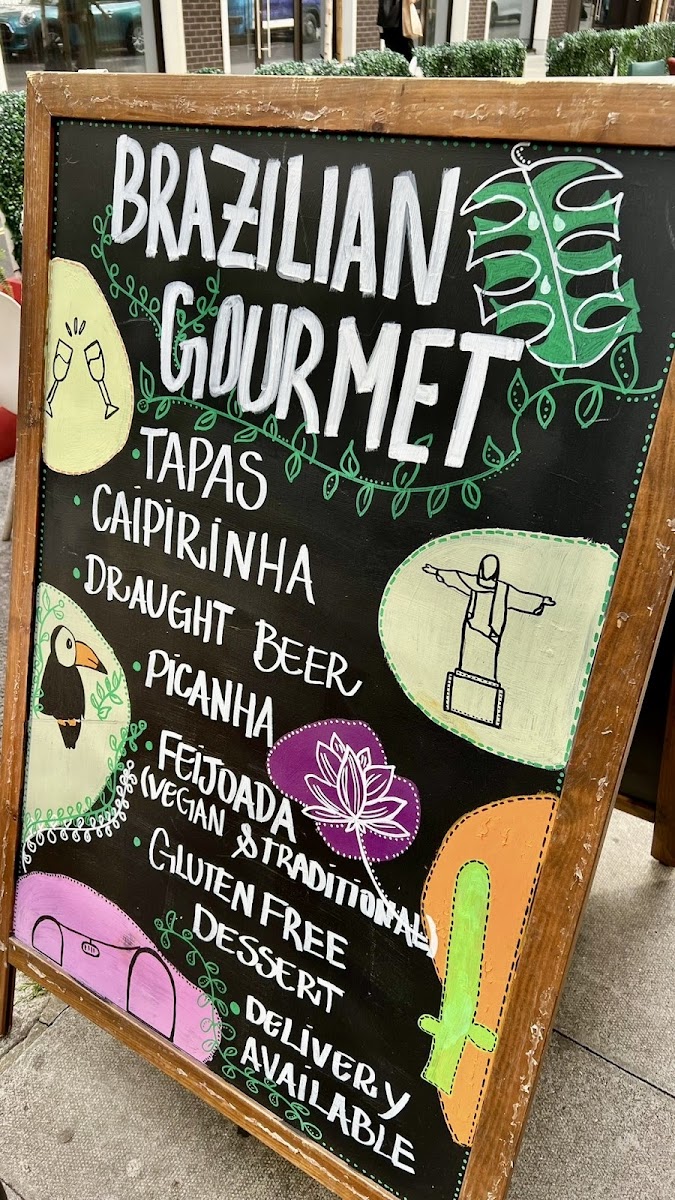 BRAZILIAN
GOURMET
• TAPAS
• CAIPIRINHA
• DRAUGHT BEER
• PICANHA
• FEIJOADA
(VEGAN & TRADITIONAL)
• GLUTEN FREE
DESSERT
• DELIVERY
AVAILABLE